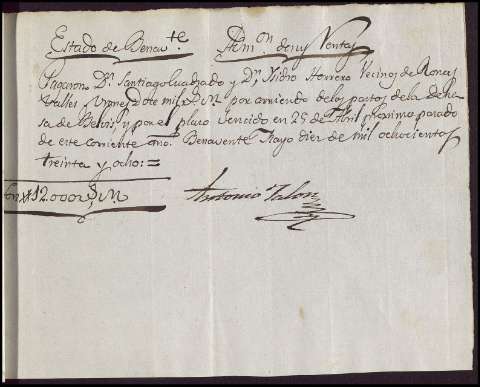 Estado de Benav.te Adm.on de sus Rentas
Pagaron D.n Santiago Cualzado y D.n Ysidro Herrero Vecinos de
Valles, doze mil r.s v.n por arriendo de los pastos de la Dehe
sa de Belvis, y por el plazo vencido en 25 de Abril proximo pasado
de este corriente año. Benavente Mayo diez de mil ochocientos
treinta y ocho:=
Son #12.000 r.s v.n
Antonio Talon